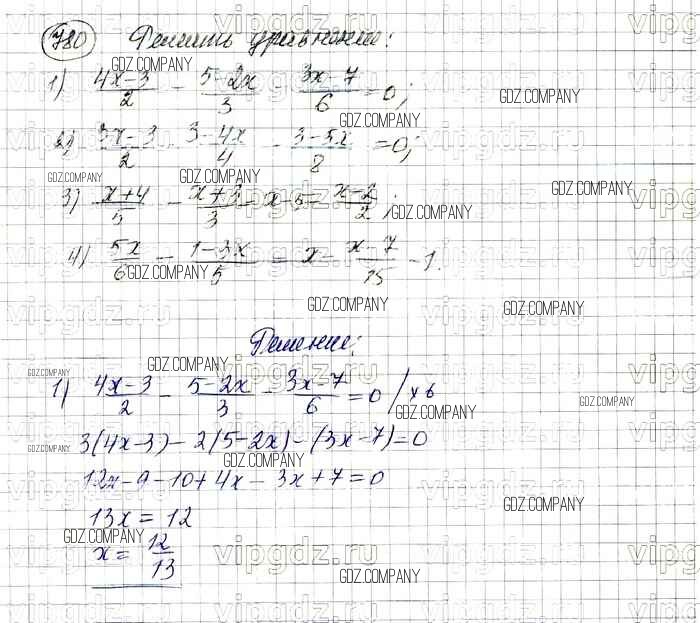 780 Решить уравнение:
1) (4x-3)/2 - (5-2x)/3 - (3x-7)/6 = 0;
2) (3x-3)/2 - (3-4x)/4 - (3-5x)/8 = 0;
3) (x+4)/5 - (x+3)/3 = x-5 - (x-2)/2;
4) 5x/6 - (1-3x)/5 = x - (x-7)/15 - 1.
Решение:
1) (4x-3)/2 - (5-2x)/3 - (3x-7)/6 = 0 /x6
3(4x-3)-2(5-2x)-(3x-7)=0
12x-9-10+4x-3x+7=0
13x = 12
x = 12/13
GDZ.COMPANY
vipgdz.ru